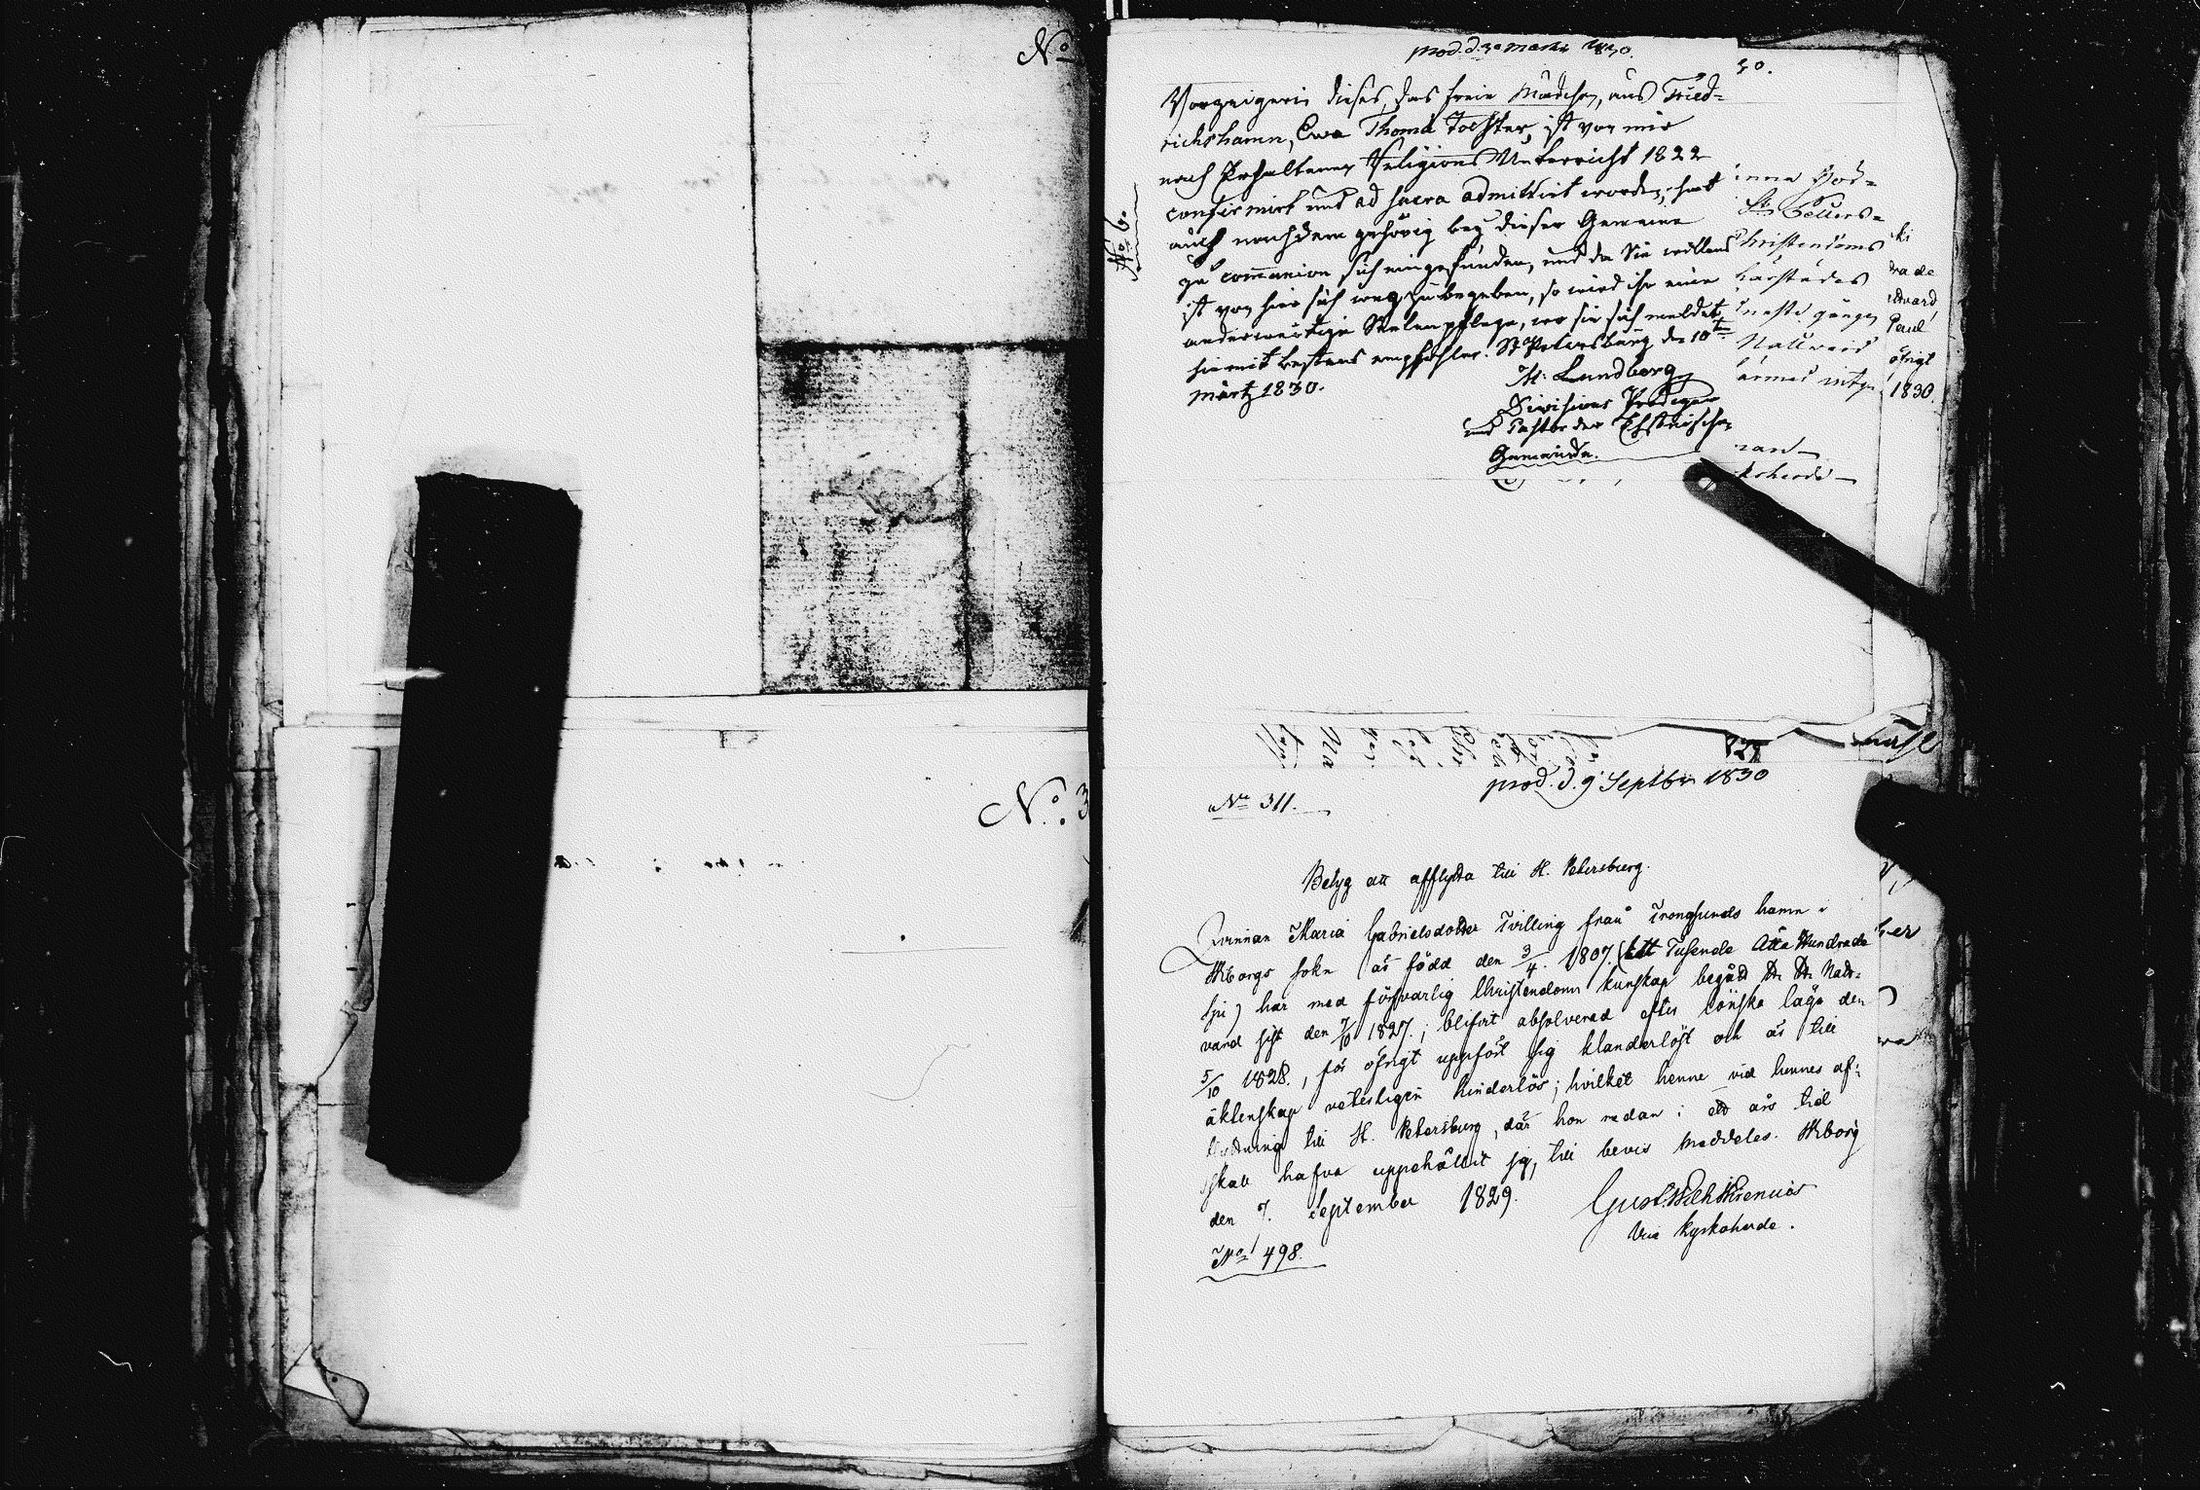 No
prod. d. 30 Martii 1830.
30.
No 6.
Vorzeigerin dieses, das freie Mädchen, aus Fried-
richshamn, Ewa Thomä Tochter, ist von mir
nach Erhaltenen Religions Unterricht 1822
confirmirt und ad sacra admittirt worden, hat
auch nachdem gehörig bey dieser Gemeine
zu comunion sich eingefunden, und da Sie willens
ist von hier sich weg zu begeben, so wird ihr eine
anderwärtige Seelenpflege, wo sie sich meldet,
hiemit bestens empfohlen. St Petersburg d. 10t
Märtz 1830.
H. Lundberg
Divisions Prediger
und Pastor der Ehstnischen
Gemeinde.
Christendoms
1830.
No. 3
prod. d. 9 Septbr 1830
No 311.
Betyg att afflytta till St. Petersburg.
Qvinnan Maria Gabrielsdotter Tvilling från Trongsunds hamn i
Wiborgs sokn är född den 3/4. 1807. (Ett Tusende Åtta Hundrade
sju) har med försvarlig Christendoms kunskap begådt Hr. Hr. Natt-
vard sist den 7/10 1827.; blifvit absolverad efter lönska läge den
5/10 1828., för öfrigt uppfört sig klanderlöst och är till
äktenskap veterligen hinderlös; hvilket henne vid hennes af-
flyttning till St. Petersburg, där hon redan i ett års tid
skall hafva uppehållit sig, till bevis meddeles. Wiborg
den 7. September 1829.
Gust. Wilh Wirenius
Vice Kyrkoherde.
No 498.